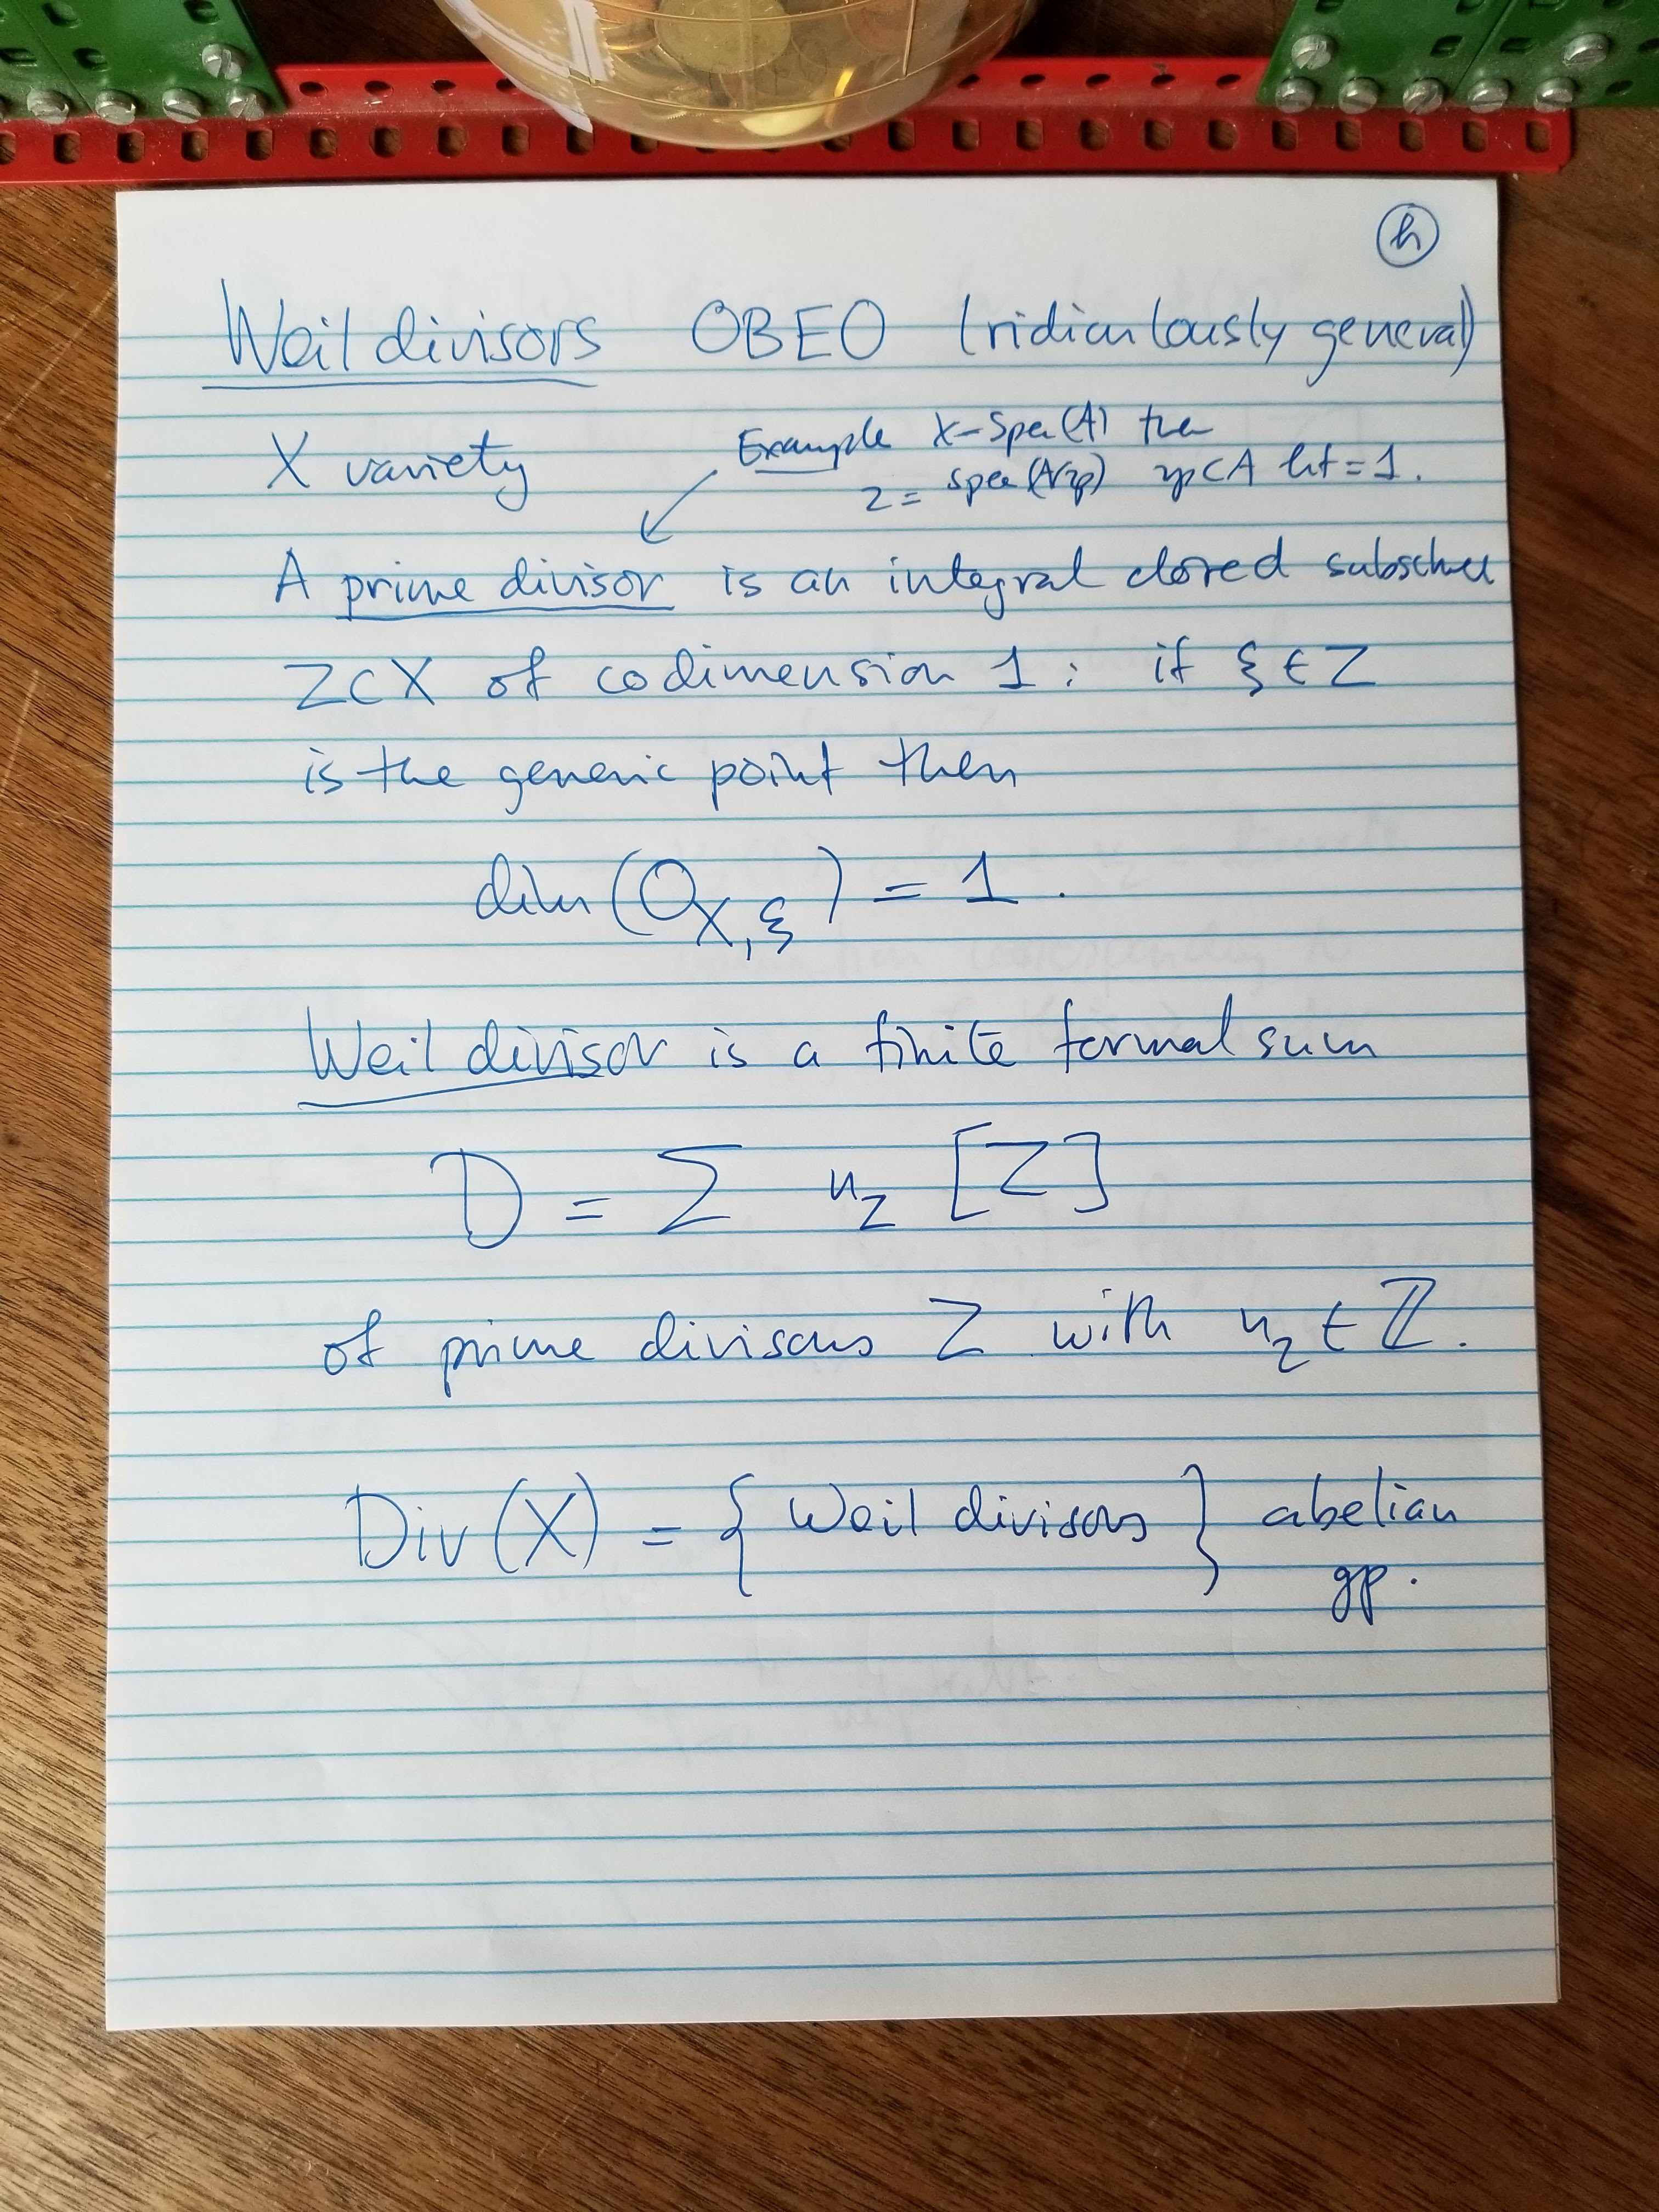 h
Weil divisors OBEO (ridiculously general)
X variety
Example X = Spec(A) then
Z = Spec(A/𝔭) 𝔭 ⊂ A ht = 1.
A prime divisor is an integral closed subscheme
Z ⊂ X of codimension 1 : if ξ ∈ Z
is the generic point then
dim(O_{X,ξ}) = 1.
Weil divisor is a finite formal sum
D = Σ n_Z [Z]
of prime divisors Z with n_Z ∈ ℤ.
Div(X) = { Weil divisors } abelian
gp.